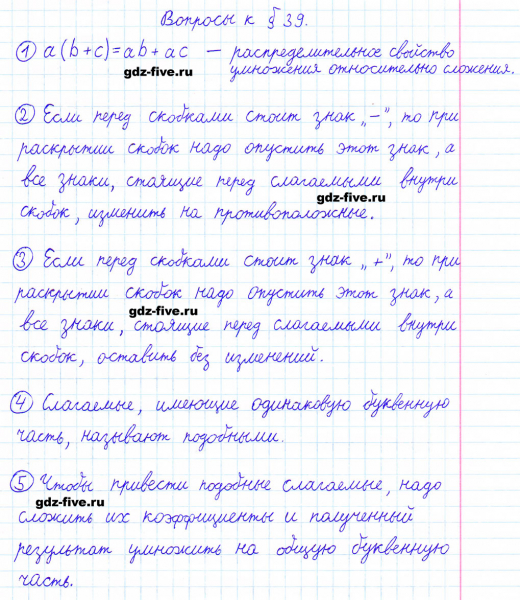 Вопросы к § 39.
① a(b+c)=ab+ac — распределительное свойство
умножения относительно сложения.
gdz-five.ru
② Если перед скобками стоит знак „−”, то при
раскрытии скобок надо опустить этот знак, а
все знаки, стоящие перед слагаемыми внутри
gdz-five.ru
скобок, изменить на противоположные.
③ Если перед скобками стоит знак „+”, то при
раскрытии скобок надо опустить этот знак, а
gdz-five.ru
все знаки, стоящие перед слагаемыми внутри
скобок, оставить без изменений.
④ Слагаемые, имеющие одинаковую буквенную
часть, называют подобными.
⑤ Чтобы привести подобные слагаемые, надо
gdz-five.ru
сложить их коэффициенты и полученный
результат умножить на общую буквенную
часть.